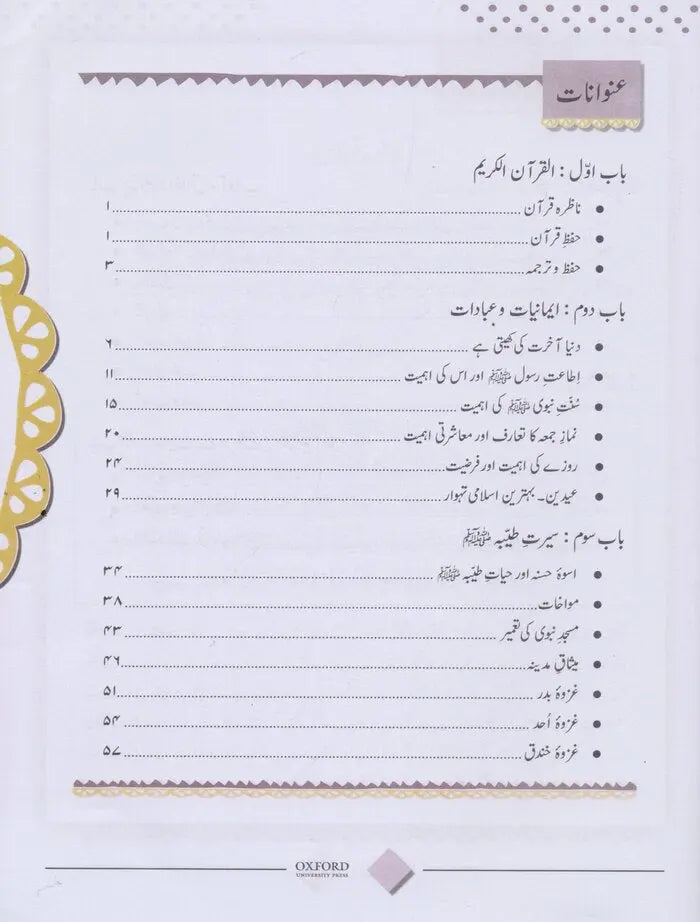 عنوانات
باب اوّل : القرآن الکریم
● ناظرہ قرآن ........ ۱
● حفظِ قرآن ........ ۱
● حفظ و ترجمہ ........ ۳
باب دوم : ایمانیات و عبادات
● دنیا آخرت کی کھیتی ہے ........ ۶
● اِطاعتِ رسول ﷺ اور اس کی اہمیت ........ ۱۱
● سُنّتِ نبوی ﷺ کی اہمیت ........ ۱۵
● نمازِ جمعہ کا تعارف اور معاشرتی اہمیت ........ ۲۰
● روزے کی اہمیت اور فرضیت ........ ۲۴
● عیدین۔ بہترین اسلامی تہوار ........ ۲۹
باب سوم : سیرتِ طیّبہ ﷺ
● اسوۂ حسنہ اور حیاتِ طیّبہ ﷺ ........ ۳۴
● مواخات ........ ۳۸
● مسجدِ نبوی کی تعمیر ........ ۴۳
● میثاقِ مدینہ ........ ۴۶
● غزوۂ بدر ........ ۵۱
● غزوۂ اُحد ........ ۵۴
● غزوۂ خندق ........ ۵۷
OXFORD
UNIVERSITY PRESS